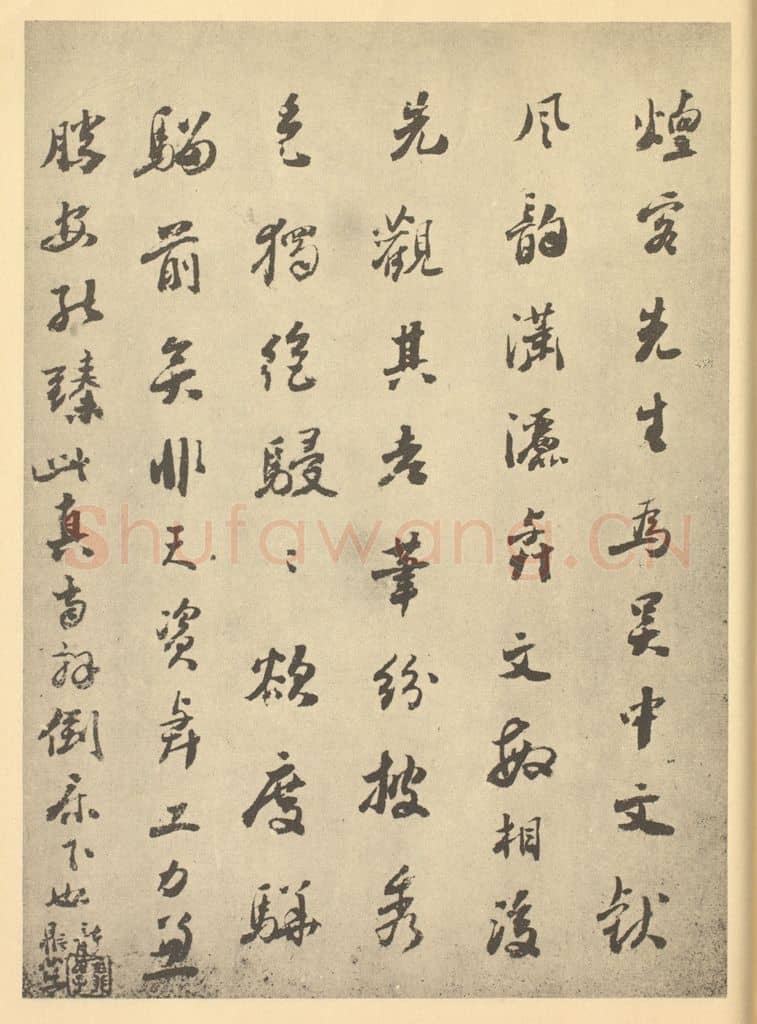 煙客先生為吳中文獻
風韵瀟灑與文敏相後
先觀其老筆紛披秀
色獨絕駸〻欲度驊
騮前矣非天資與工力兼
勝安能臻此真當拜倒床下也
Shufawang.CN